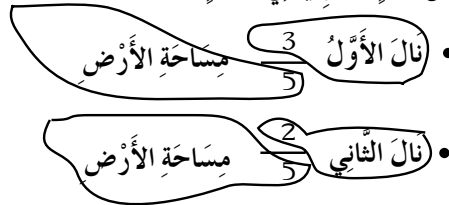 • نَالَ الأَوَّلُ 3/5 مِسَاحَةِ الأَرْضِ
• نَالَ الثَّانِي 2/5 مِسَاحَةِ الأَرْضِ